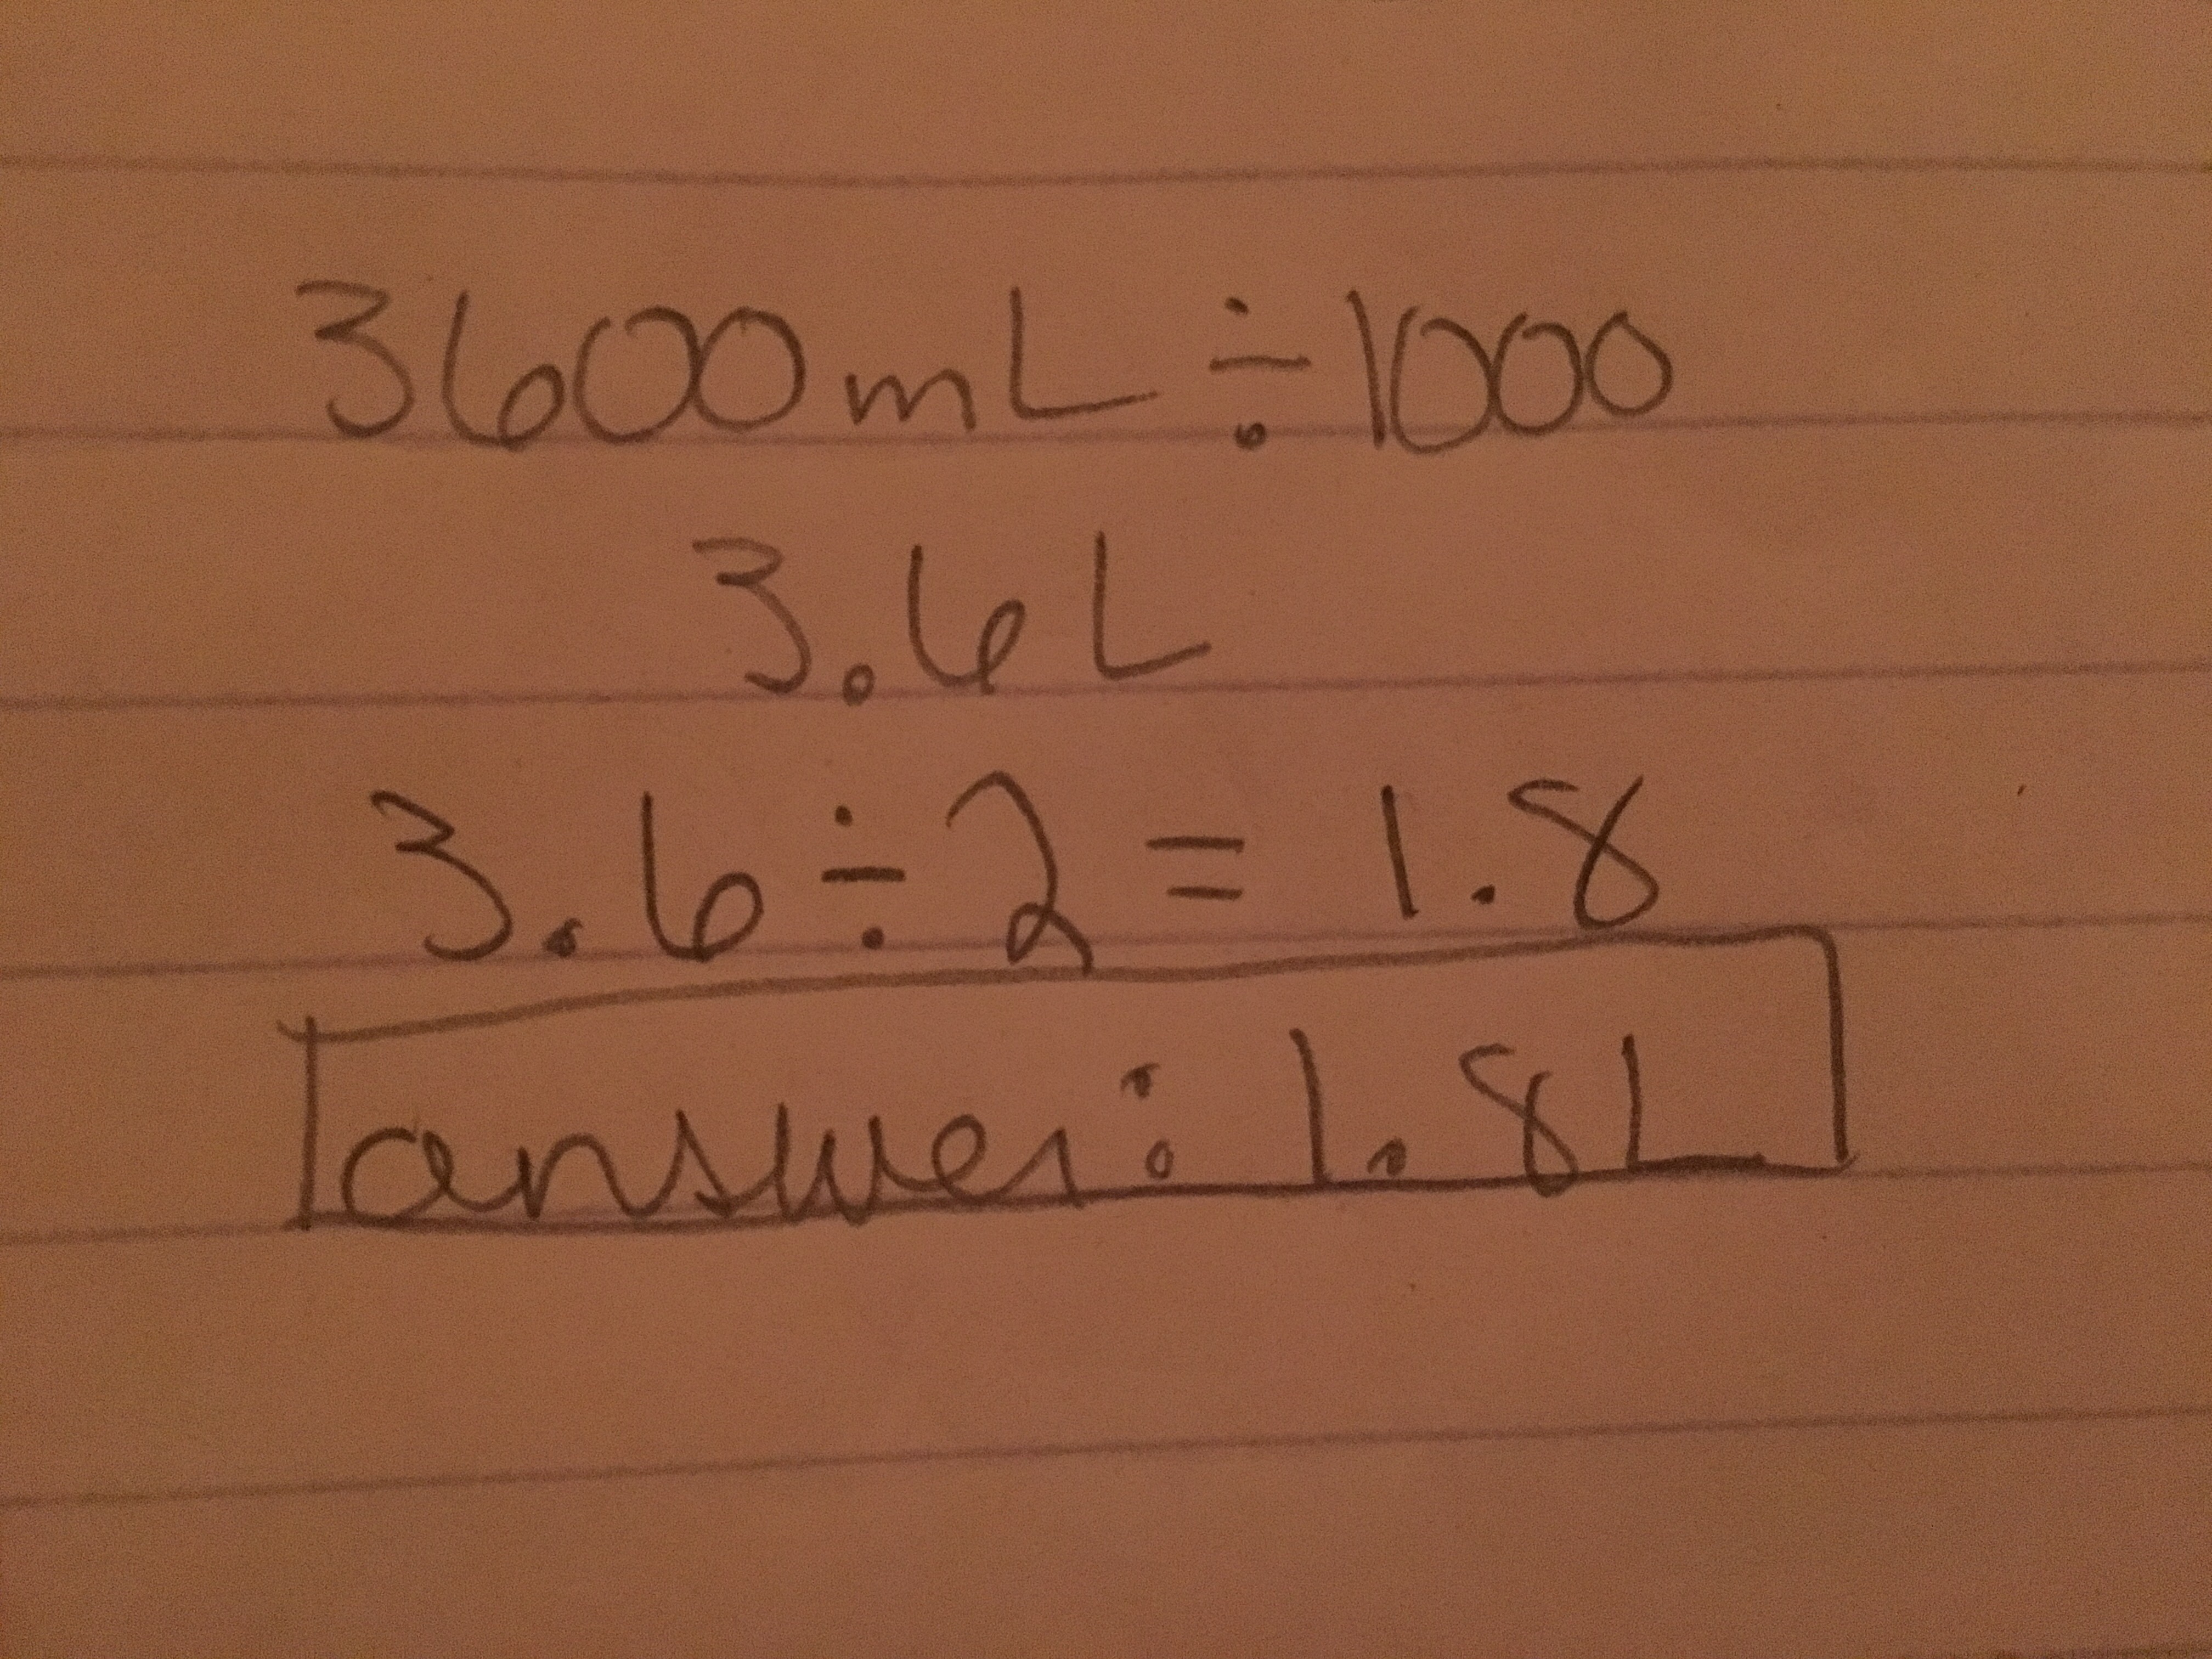 3600mL ÷ 1000
3.6L
3.6 ÷ 2 = 1.8
answer: 1.8L